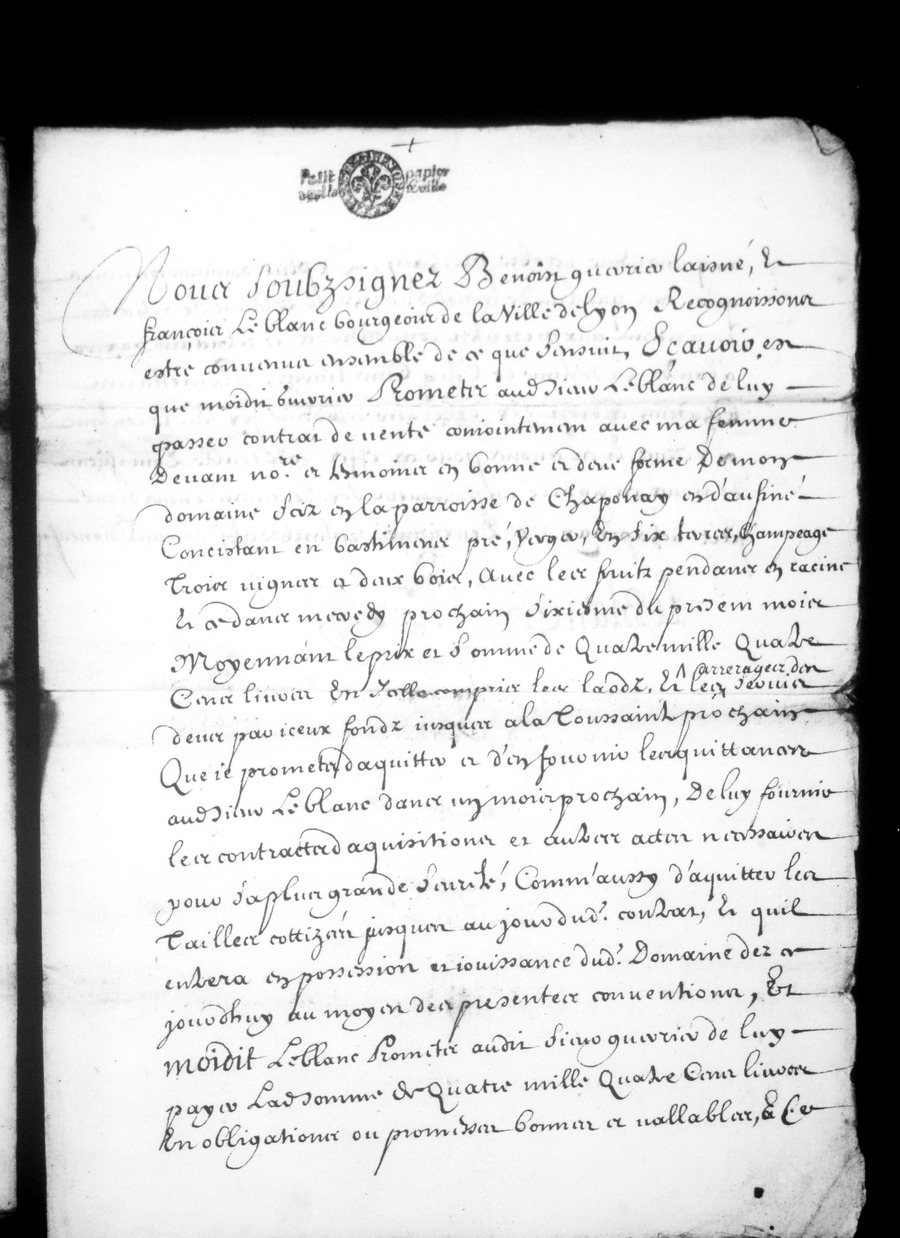 Petit papier
Nous Soubzsignez Benoist guerrier laisné, Et
françois Leblanc bourgeois de la Ville de Lyon Recognoissons
estre convenus ensemble de ce que sensuit, Sçavoir est
que moidit Guerrier Prometz audsieur Leblanc de luy
passer contrat de vente conjointement avec ma femme
Devant no.re et tesmoins en bonne et deue forme De mon
domaine Sciz en la parroisse de Chaponay en d'aufiné
Concistant en bastimens pré, Verger, En Six terres, Champeage
Trois vignes et deux bois, Avec les fruitz pendans en racine
Et ce dans mercredy prochain Sixiesme du present mois
Moyennant le prix et Somme de Quatre mille Quatre
Cens livres En Icelle comprise les laodz, Et les arrerages des Servis
deus par iceux fondz jusques a la Toussaint prochain
Que je prometz d'aquitter et d'en fournir les quittances
audsieur Leblanc dans un mois prochain, De luy fournir
les contractz d'aquisitions et autres actes necessaires
pour Sa plus grande Seurté, Comm'aussy d'aquitter les
Tailles cottizées jusques au jour dud. contrat, Et quil
entrera en possession et jouissance dud. Domaine dez ce
jourdhuy au moyen des presentes conventions, Et
moidit Leblanc Prometz audit Sieur guerrier de luy
payer Ladsomme de Quatre mille Quatre Cens livres
En obligations ou promesses bonnes et vallables, a Ce